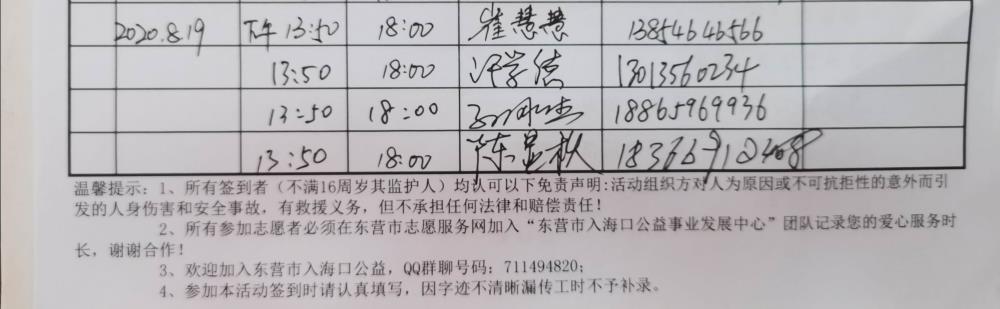 2020.8.19 下午 13:50 18:00 崔慧慧 13854646566
13:50 18:00 许学德 13013560234
13:50 18:00 18865969936
13:50 18:00 陈显秋
温馨提示：1、所有签到者（不满16周岁其监护人）均认可以下免责声明:活动组织方对人为原因或不可抗拒性的意外而引
发的人身伤害和安全事故，有救援义务，但不承担任何法律和赔偿责任！
2、所有参加志愿者必须在东营市志愿服务网加入“东营市入海口公益事业发展中心”团队记录您的爱心服务时
长，谢谢合作！
3、欢迎加入东营市入海口公益，QQ群聊号码：711494820；
4、参加本活动签到时请认真填写，因字迹不清晰漏传工时不予补录。